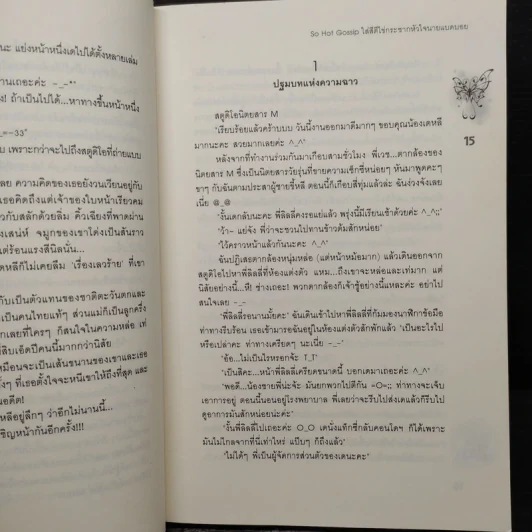 นะ แย่งหน้าหนึ่งเดไปได้ตั้งหลายเล่ม
านเถอะค่ะ -_-"
ง! ถ้าเป็นไปได้...หาทางขึ้นหน้าหนึ่ง
_=-33"
บ เพราะกว่าจะไปถึงสตูดิโอที่ถ่ายแบบ
เลย ความคิดของเธอยังวนเวียนอยู่กับ
เธอคิดถึงแต่เจ้าของใบหน้าเรียวคม
วกับสลักด้วยลิ่ม คิ้วเฉียงที่พาดผ่าน
งเสน่ห์ จมูกของเขาโด่งเป็นสันราว
แต่ร้อนแรงสีนิลนั่น...
ดหลีก็ไม่เคยลืม 'เรื่องเลวร้าย' ที่เขา
กับเป็นตัวแทนของชาติตะวันตกและ
เป็นคนไทยแท้ๆ ส่วนแม่ก็เป็นลูกครึ่ง
กเลยที่ใครๆ ก็สนใจในความหล่อ เท่
สิบเอ็ดปีคนนี้มากกว่านิสัย
หมือนจะเป็นเส้นขนานของเขาและเธอ
รั้งๆ ที่เธอตั้งใจจะหนีเขาให้ถึงที่สุด และ
นอดีต!
หลีอยู่ลึกๆ ว่าอีกไม่นานนี้...
ชิญหน้ากันอีกครั้ง!!!
So Hot Gossip ใส่สีตีไข่กระชากหัวใจนายแบดบอย
1
ปฐมบทแห่งความฉาว
15
สตูดิโอนิตยสาร M
'เรียบร้อยแล้วคร้าบบบ วันนี้งานออกมาดีมากๆ ขอบคุณน้องเดหลี
มากนะคะ สวยมากเลยค่ะ ^_^'
หลังจากที่ทำงานร่วมกันมาเกือบสามชั่วโมง พี่เวช...ตากล้องของ
นิตยสาร M ซึ่งเป็นนิตยสารวัยรุ่นที่ขายความเซ็กซี่หน่อยๆ หันมาพูดคะๆ
ขาๆ กับฉันตามประสาผู้ชายขี้หลี ตอนนี้ก็เกือบสี่ทุ่มแล้วล่ะ ฉันง่วงจังเลย
เนี่ย @_@
'งั้นเดกลับนะคะ พี่ลิลลี่คงรอแย่แล้ว พรุ่งนี้มีเรียนเช้าด้วยค่ะ ^_^;;'
'ว้า~ แย่จัง พี่ว่าจะชวนไปทานข้าวต้มสักหน่อย'
'ไว้คราวหน้าแล้วกันนะคะ ^_^'
ฉันปฏิเสธตากล้องหนุ่มหล่อ (แต่หน้าหม้อมาก) แล้วเดินออกจาก
สตูดิโอไปหาพี่ลิลลี่ที่ห้องแต่งตัว แหม...ถึงเขาจะหล่อและเท่มาก แต่
นิสัยอย่างนี้...หึ! ช่างเถอะ! พวกตากล้องก็เจ้าชู้อย่างนี้แหละค่ะ อย่าไป
สนใจเลย -_-
"พี่ลิลลี่รอนานมั้ยคะ" ฉันเดินเข้าไปหาพี่ลิลลี่ที่ก้มมองนาฬิกาข้อมือ
ท่าทางรีบร้อน เธอเข้ามารอฉันอยู่ในห้องแต่งตัวสักพักแล้ว "เป็นอะไรไป
หรือเปล่าคะ ท่าทางเครียดๆ นะเนี่ย -_-"
"อ้อ...ไม่เป็นไรหรอกจ้ะ T_T"
"เป็นสิคะ...หน้าพี่ลิลลี่เครียดขนาดนี้ บอกเดมาเถอะค่ะ ^_^"
"พอดี...น้องชายพี่น่ะจ้ะ มันยกพวกไปตีกัน =O=;; ท่าทางจะเจ็บ
เอาการอยู่ ตอนนี้นอนอยู่โรงพยาบาล พี่เลยว่าจะรีบไปส่งเดแล้วก็รีบไป
ดูอาการมันสักหน่อยน่ะค่ะ"
"งั้นพี่ลิลลี่ไปเถอะค่ะ O_O เดนั่งแท็กซี่กลับคอนโดฯ ก็ได้เพราะ
มันไม่ไกลจากที่นี่เท่าไหร่ แป๊บๆ ก็ถึงแล้ว"
"ไม่ได้ๆ พี่เป็นผู้จัดการส่วนตัวของเดนะคะ"